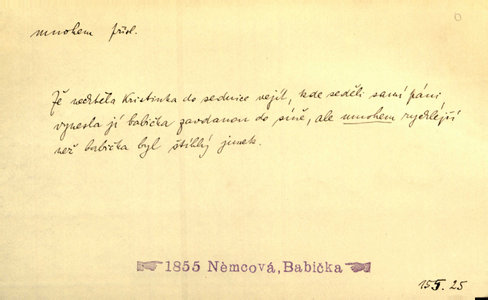 mnohem přísl.
Že nechtěla Kristinka do sednice vejít, kde seděli samí páni,
vynesla jí babička zavdanou do síně, ale mnohem rychlejší
než babička byl štíhlý junek.
1855 Němcová, Babička
15. 25